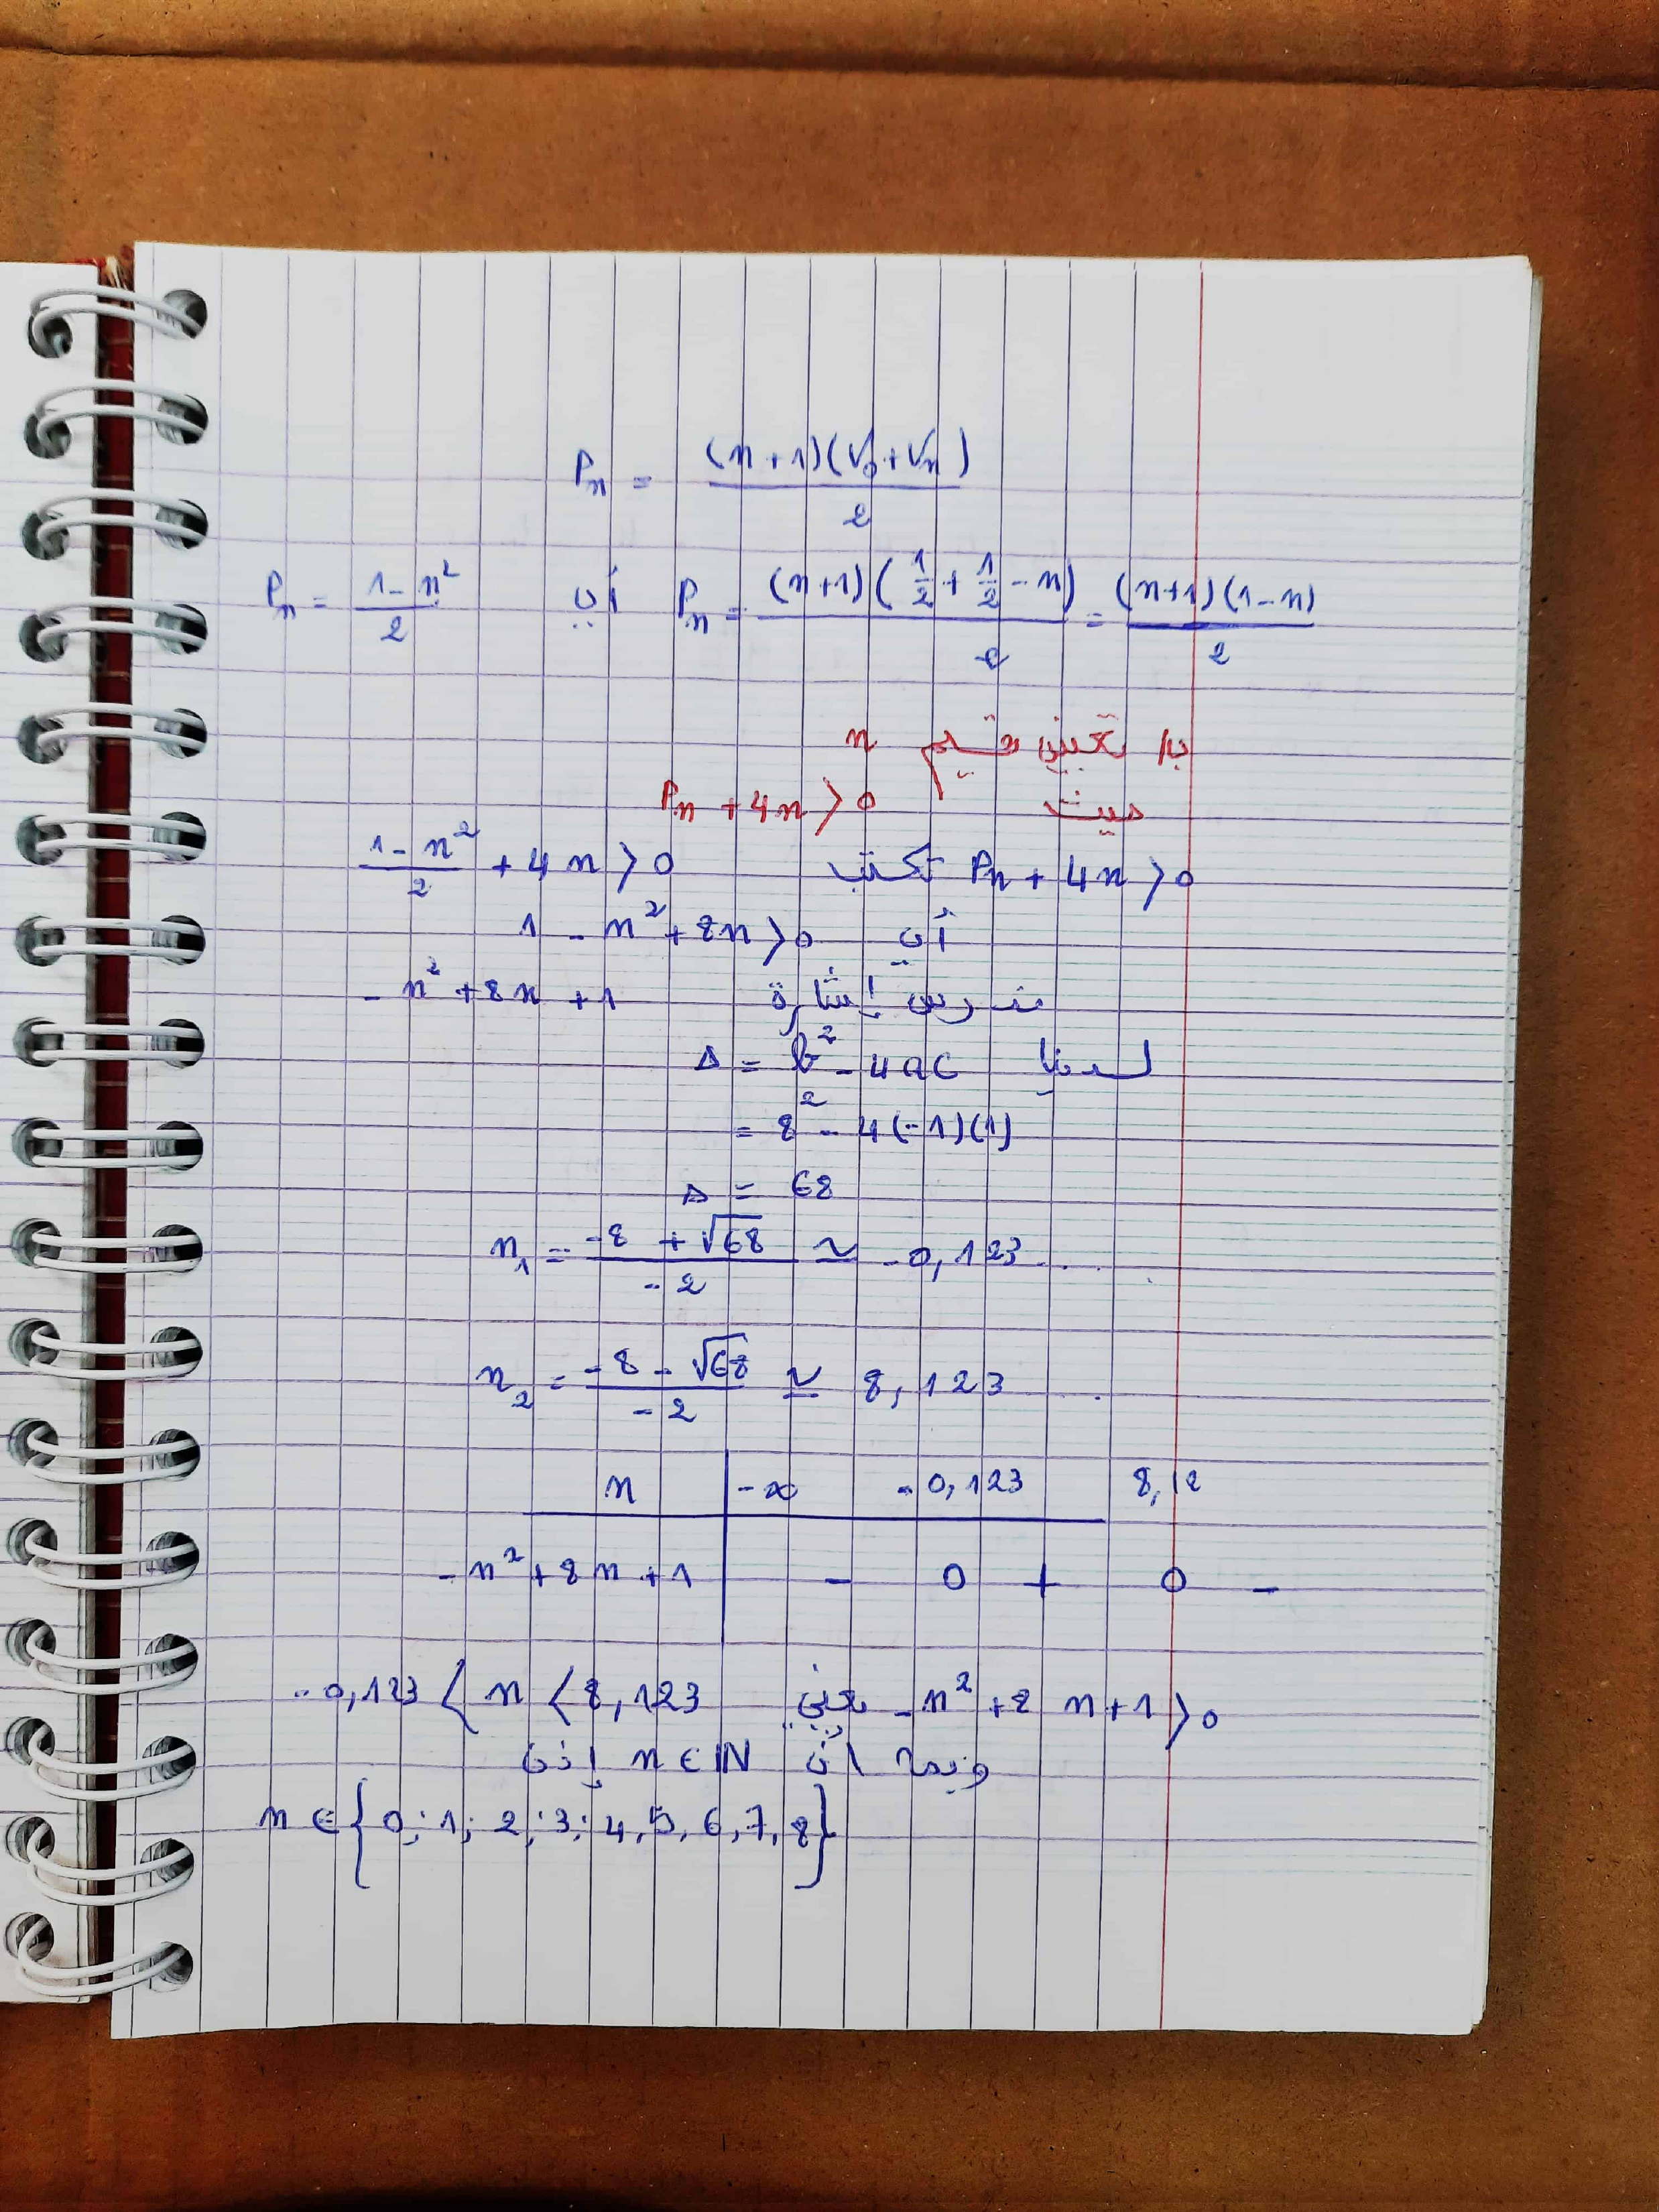 Pn = (n+1)(V0+Vn) / 2
Pn = (n+1)(1/2 + 1/2 - n) / 2 = (n+1)(1-n) / 2 أي Pn = 1-n² / 2
ب/ تعيين قيم n
حيث Pn + 4n > 0
Pn + 4n > 0 تكتب 1-n² / 2 + 4n > 0
أي 1 - n² + 8n > 0
ندرس إشارة - n² + 8n + 1
لدينا Δ = b² - 4ac
= 8² - 4(-1)(1)
Δ = 68
n1 = -8 + √68 / -2 ≈ -0,123...
n2 = -8 - √68 / -2 ≃ 8,123 ..
n -∞ -0,123 8,12
-n² + 8n + 1 - 0 + 0 -
-n² + 8n + 1 > 0 يعني -0,123 < n < 8,123
وبما أن n ∈ IN إذن
n ∈ {0; 1; 2; 3; 4, 5, 6, 7, 8}